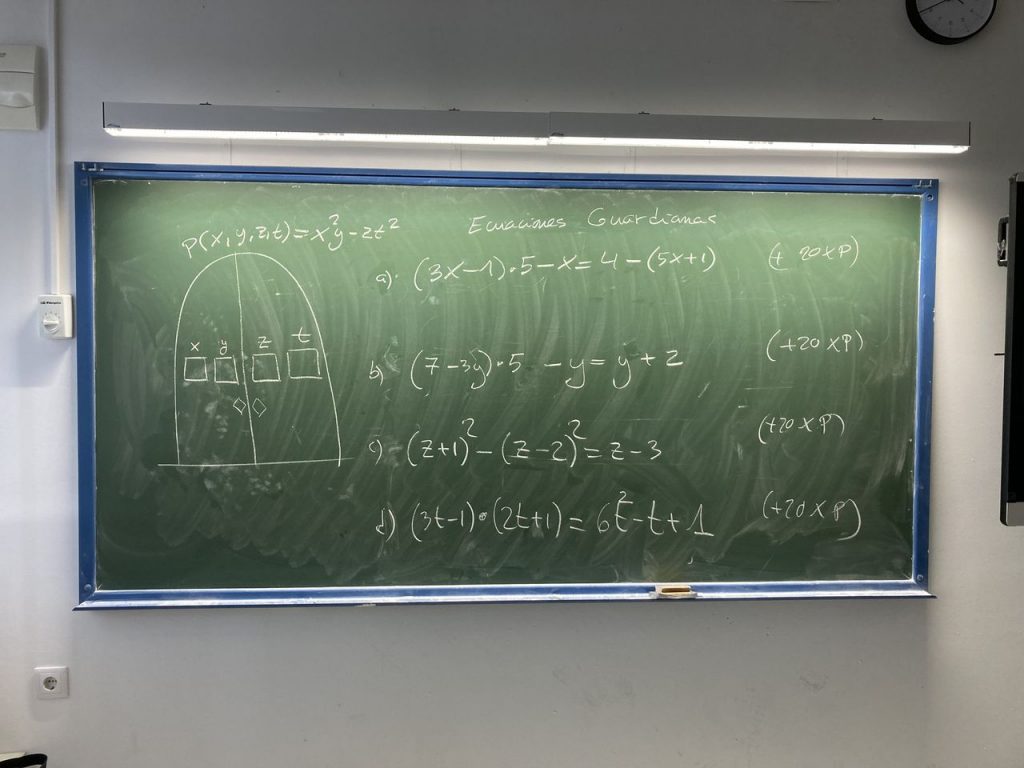 P(x,y,z,t)=x²y-zt²
Ecuaciones Guardianas
a) (3x-1)·5-x=4-(5x+1) (+20XP)
x y z t
b) (7-3y)·5-y=y+2 (+20XP)
c) (z+1)²-(z-2)²=z-3 (+20XP)
d) (3t-1)·(2t+1)=6t²-t+1 (+20XP)